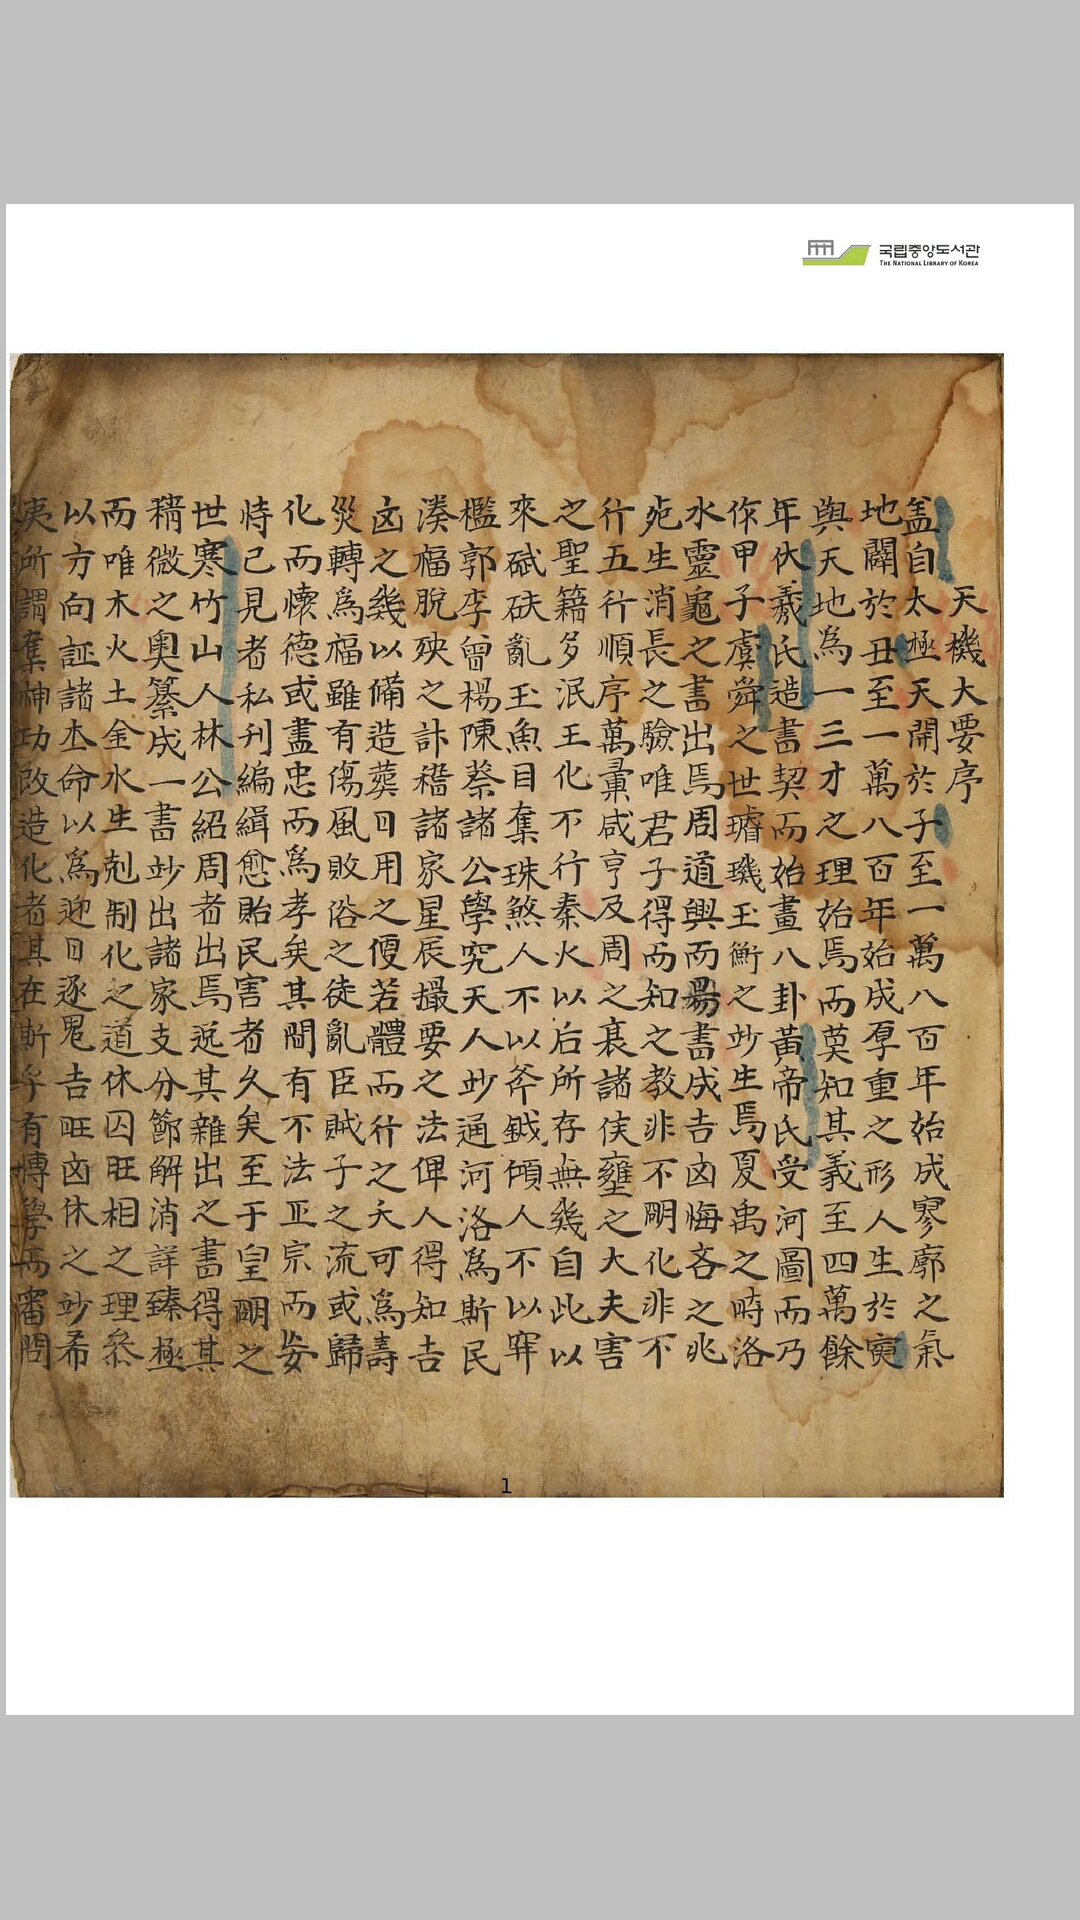 국립중앙도서관
THE NATIONAL LIBRARY OF KOREA
天機大要序
盖自太極天開於子至一萬八百年始成寥廓之氣
地闢於丑至一萬八百年始成厚重之形人生於寅
與天地爲一三才之理始焉而莫知其義至四萬餘
年伏羲氏造書契而始畫八卦黃帝氏受河圖而乃
作甲子虞舜之世璿璣玉衡之玅生焉夏禹之時洛
水靈龜之書出焉周道興而易書成吉凶悔吝之兆
死生消長之驗唯君子得而知之教非不明化非不
行五行順序萬彙咸亨及周之衰諸侯壅之大夫害
之聖籍多泯王化不行秦火以后所存無幾自此以
來碔砆亂玉魚目奪珠煞人不以斧鉞傾人不以穽
檻郭李曾楊陳蔡諸公學究天人玅通河洛爲斯民
湊福脫殃之計稽諸家星辰撮要之法俾人得知吉
凶之幾以備造葬日用之便若體而行之夭可爲壽
災轉爲福雖有傷風敗俗之徒亂臣賊子之流或歸
化而懷德或盡忠而爲孝矣其間有不法正宗而妄
恃己見者私刊編緝愈貽民害者久矣至于皇明之
世寒竹山人林公紹周者出焉逆其雜出之書得其
精微之奧纂成一書玅出諸家支分節解消詳臻極
而唯木火土金水生剋制化之道休囚旺相之理叅
以方向証諸本命以爲迎日逐鬼吉旺凶休之玅希
夷所謂奪神功改造化者其在斯乎有博學而審問
1